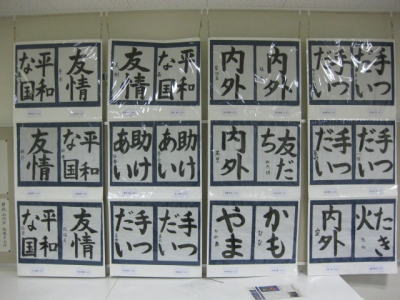 平和
な国
友情
友情
平和
な国
内外
内外
手つ
だい
手つ
だい
友情
平和
な国
助け
あい
助け
あい
内外
友だ
ち
手つ
だい
手つ
だい
平和
な国
友情
手つ
だい
手つ
だい
やま
かも
内外
たき
火